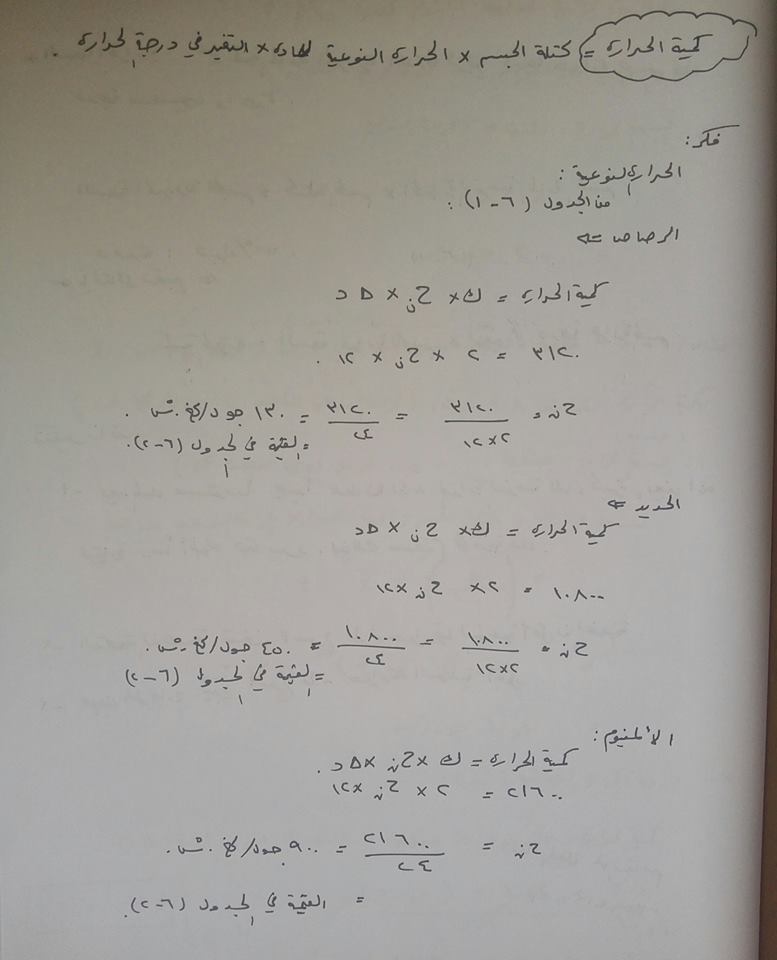 كمية الحرارة = كتلة الجسم × الحرارة النوعية للمادة × التغير في درجة الحرارة .
فكر :
الحرارة النوعية :
من الجدول (٦-١) :
الرصاص ⇐
كمية الحرارة = ك × حن × Δ د
٣١٢٠ = ٢ × حن × ١٢ .
حن = ٣١٢٠ / ١٢×٢ = ٣١٢٠ / ٢٤ = ١٣٠ جول/كغ.س .
= القيمة في الجدول (٦-٢).
الحديد ⇐
كمية الحرارة = ك × حن × Δد
١٠٨٠٠ = ٢× حن ×١٢
حن = ١٠٨٠٠ / ١٢×٢ = ١٠٨٠٠ / ٢٤ = ٤٥٠ جول/كغ.س .
= القيمة في الجدول (٦-٢)
الألمنيوم :
كمية الحرارة = ك ×حن ×Δ د .
٢١٦٠٠ = ٢ × حن ×١٢
حن = ٢١٦٠٠ / ٢٤ = ٩٠٠ جول/كغ.س .
= القيمة في الجدول (٦-٢).